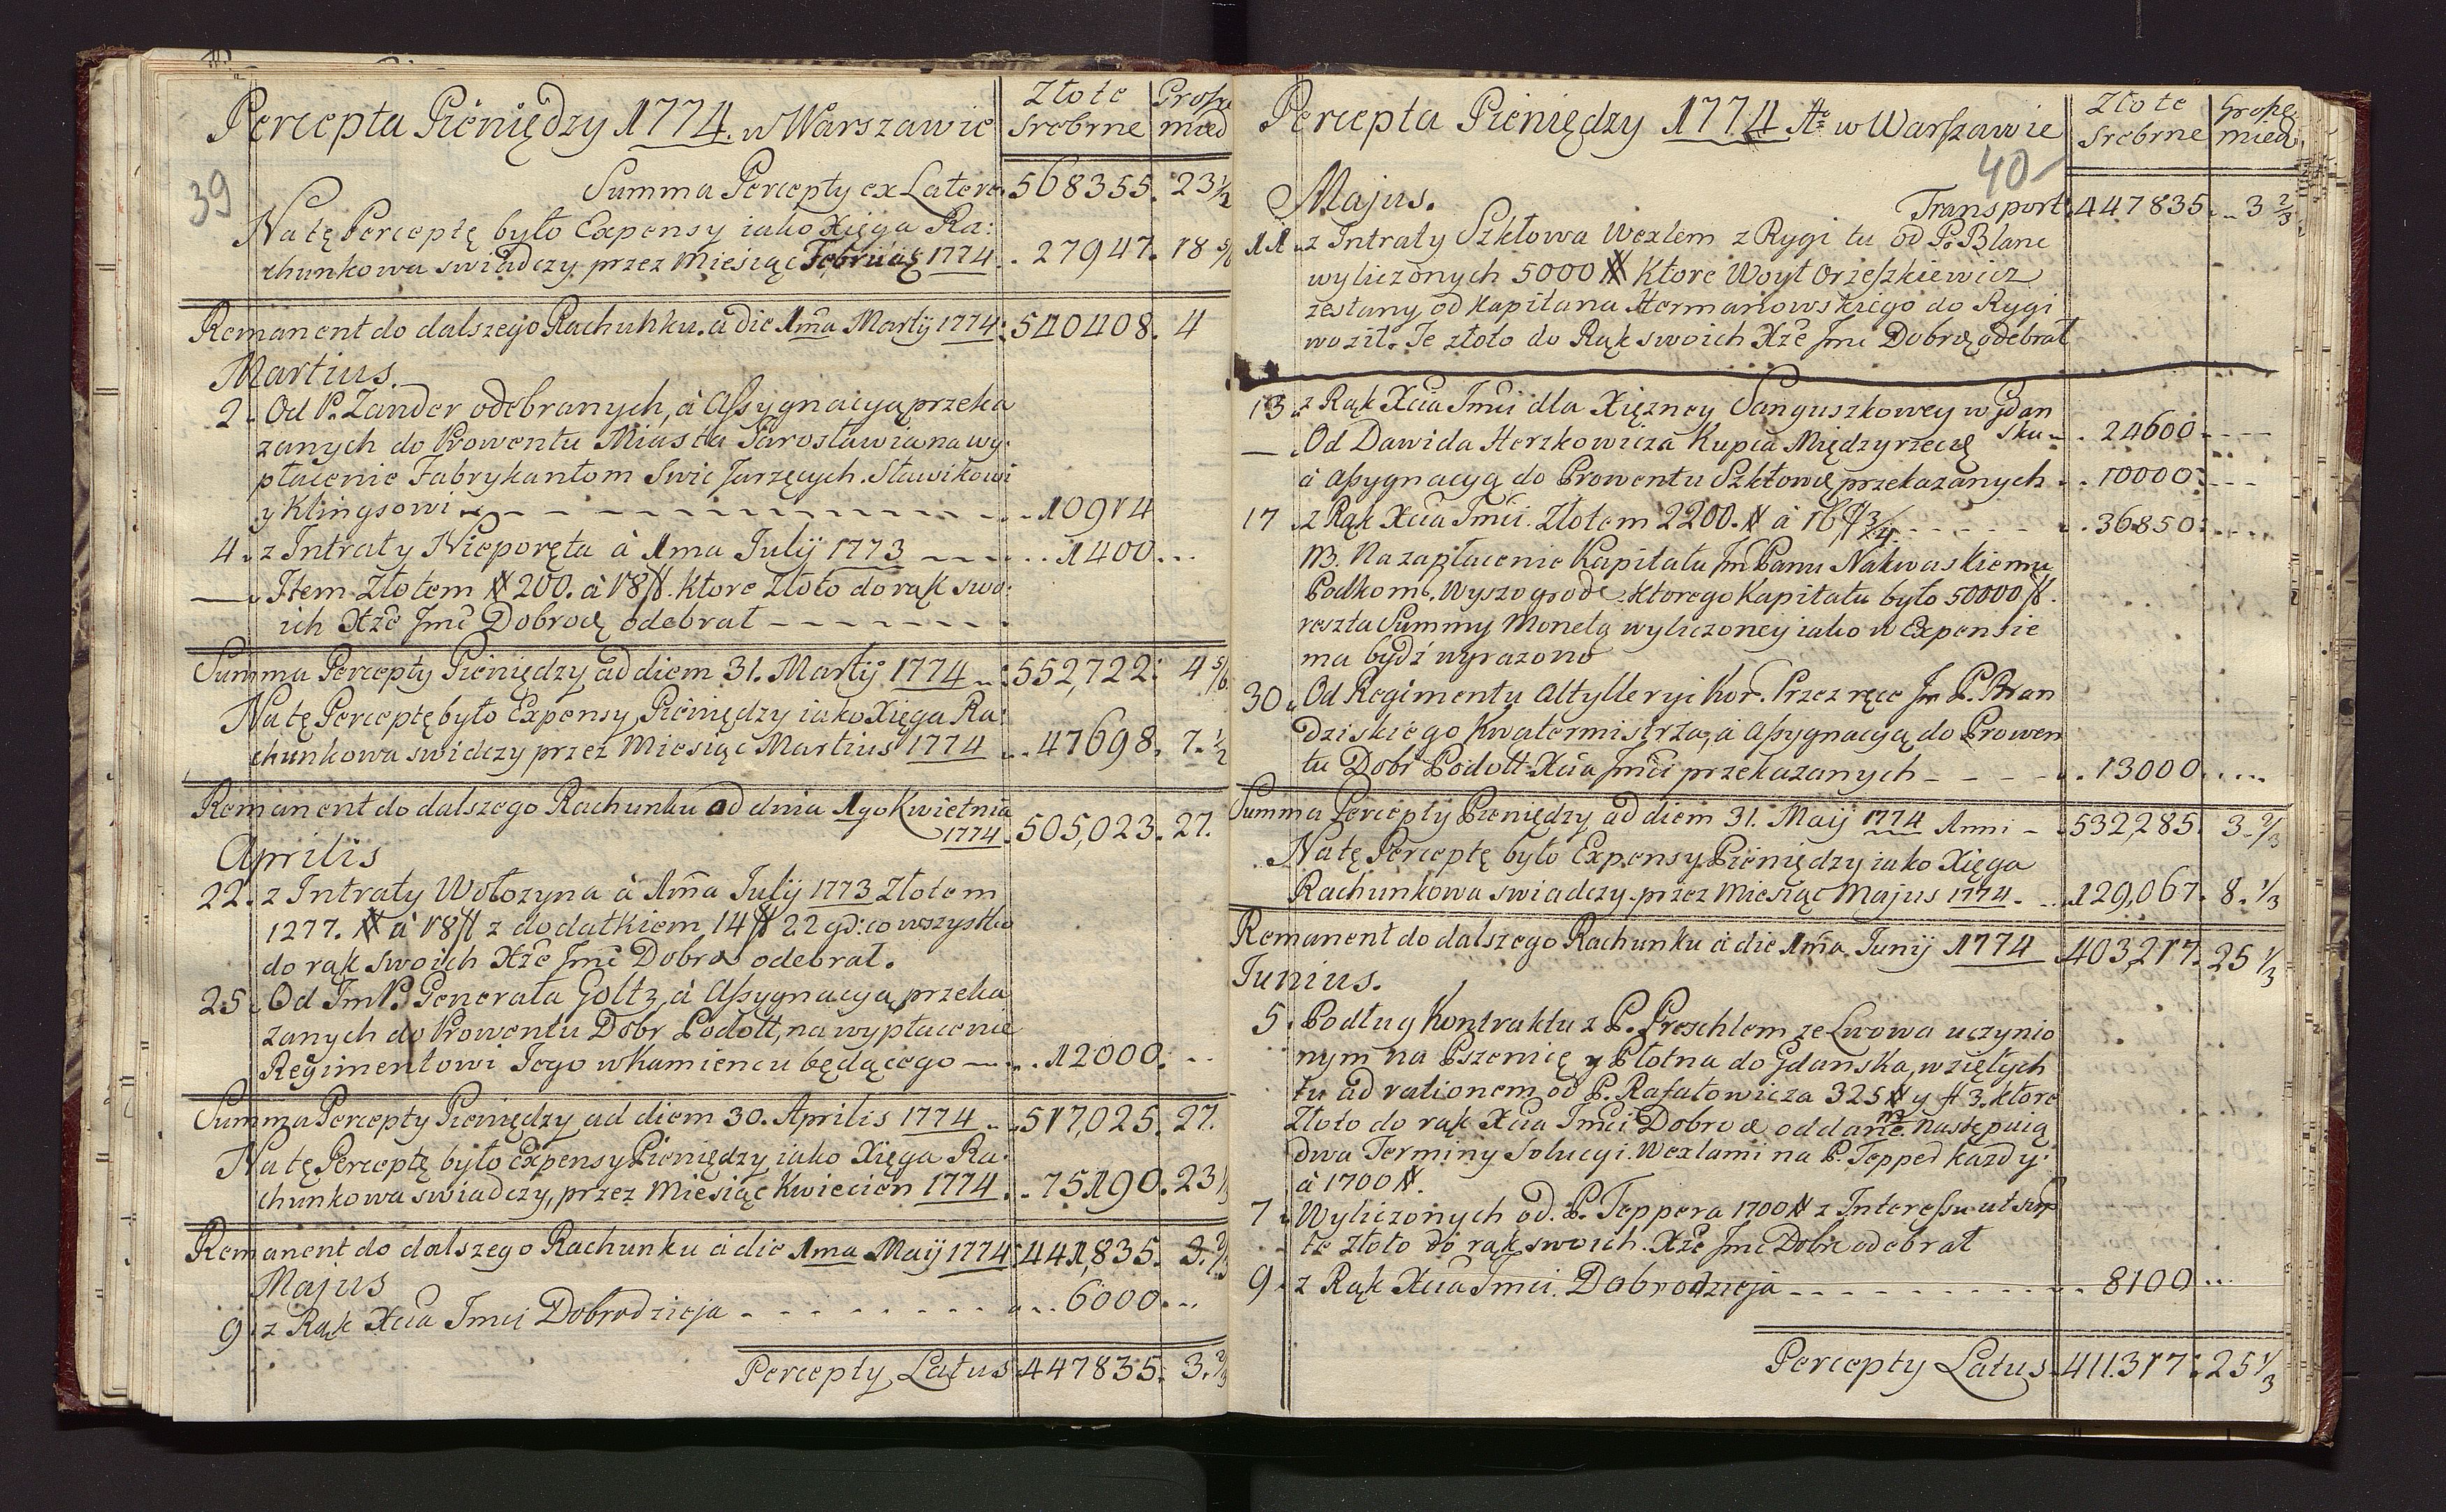 Percepta Pieniędzy 1774. w Warszawie
Złote Srebrne
Grosze mied
39
Summa Percepty ex Latere 568355. 23 1/2
Na tę Perceptę było Expensy iako Xięga Ra:
chunkowa swiadczy przez Miesiąc 1774. 27947. 18 5/6
Remanent do dalszego Rachunku. a die 1ma Martij 1774: 540408. 4
Martius.
2. Od P. Zander odebranych, à Assygnacyą przeka
zanych do Prowentu Miasta Jarosławia na wy:
płacenie Fabrykantom Swic Jarzęcych. Sławikowi
y Klingsowi 10914
4. z Intraty Nieporęta à 1ma Julij 1773 1400.
Item Złotem # 200. à 18 fl. ktore Złoto do rąk swo:
ich Xże Jmć Dobrodź odebrał
Summa Percepty Pieniędzy ad diem 31. Martij 1774 552,722: 4 5/6
Na tę Perceptę było Expensy Pieniędzy iako Xięga Ra:
chunkowa swidczy przez Miesiąc Martius 1774 47698. 7. 1/2
Remanent do dalszego Rachunku od dnia 1go Kwietnia
1774. 505,023. 27.
Aprilis
22. z Intraty Wołozyna à 1ma Julij 1773 Złotem
1277. # à 18 fl z dodatkiem 14 fl 22 gr: co wszystko
do rąk swoich Xże Jmć Dobro odebrał.
25. Od Jm P. Generała Goltz, à Assygnacyą przeka
zanych do Prowentu Dobr Podoll, na wypłacenie
Regimentowi Jego w Kamiencu będącego 12000.
Summa Percepty Pieniędzy ad diem 30. Aprilis 1774 517,025. 27.
Na tę Perceptę było Expensy Pieniędzy iako Xięga Ra:
chunkowa swiadczy, przez Miesiąc Kwiecien 1774. 75190. 23 1/3
Remanent do dalszego Rachunku à die 1ma Maij 1774: 441,835. 3. 2/3
Majus
9. z Rąk Xcia Jmci Dobrodzieja 6000.
Percepty Latus 447835. 3. 2/3
Percepta Pieniędzy 1774 Ao w Warszawie
Złote Srebrne
Grosze mied.
40
Majus.
Transport 447835. 3 2/3
11. z Intraty Szkłowa Wexlem z Rygi tu od P. Blanc
wyliczonych 5000 # Ktore Woyt Orzeszkiewicz
zesłany od Kapitana Hermanowskiego do Rygi
woził. Te złoto do Rąk swoich Xże Jmć Dobrdź odebrał
13. z Rąk Xcia Jmci dla Xiężney Sanguszkowey w Gdan
sku 24600
— Od Dawida Herzkowicza Kupca Międzyrzecę
à Assygnacyą do Prowentu Szkłowę przekazanych 10000.
17. z Rąk Xcia Jmci. Złotem 2200. # à 16 fl 3/4. 36850.
NB. Na zapłacenie Kapitału Jm Panu Nakwaskiemu
Podkom. Wyszogrodz. ktorego Kapitału było 50000 fl.
reszta Summy Monetą wyliczoney iako w Expensie
ma bydź wyrazono
30. Od Regimentu Altylleryi Kor. Przez ręce Jm P. Bran
dziskiego Kwatermistrza, à Assygnacyą do Prowen
tu Dobr Podoll Xcia Jmci przekazanych 13000.
Summa Percepty Pieniędzy ad diem 31. Maij 1774 Anni 532,285. 3. 2/3
Na tę Perceptę było Expensy Pieniędzy iako Xięga
Rachunkowa swiadczy. przez Miesiąc Majus 1774. 129,067. 8. 1/3
Remanent do dalszego Rachunku à die 1ma. Junij 1774 403,217. 25 1/3
Junius.
5. Podług Kontraktu z P. Preschlem ze Lwowa uczynio
nym na Pszenicę y Płotna do Gdanska, wziętych
tu ad rationem od P. Rafałowicza 325 # y fl 3. ktore
Złoto do rąk Xcia Jmci Dobrodź oddane. następuią
dwa Terminy Solucyi. Wexlami na P. Tepper kazdy:
à 1700 #.
7. Wyliczonych od. P. Teppera 1700 # z Interessu ut supr
te złoto do rąk swoich. Xże Jmć Dobr odebrał
9. z Rąk Xcia Jmci. Dobrodzieja 8100
Percepty Latus 411.317. 25 1/3